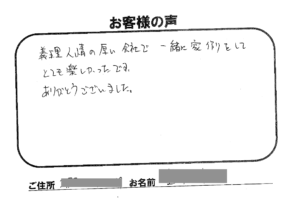 お客様の声
義理人情の厚い会社で 一緒に家作りをして
とても楽しかったです。
ありがとうございました。
ご住所 お名前